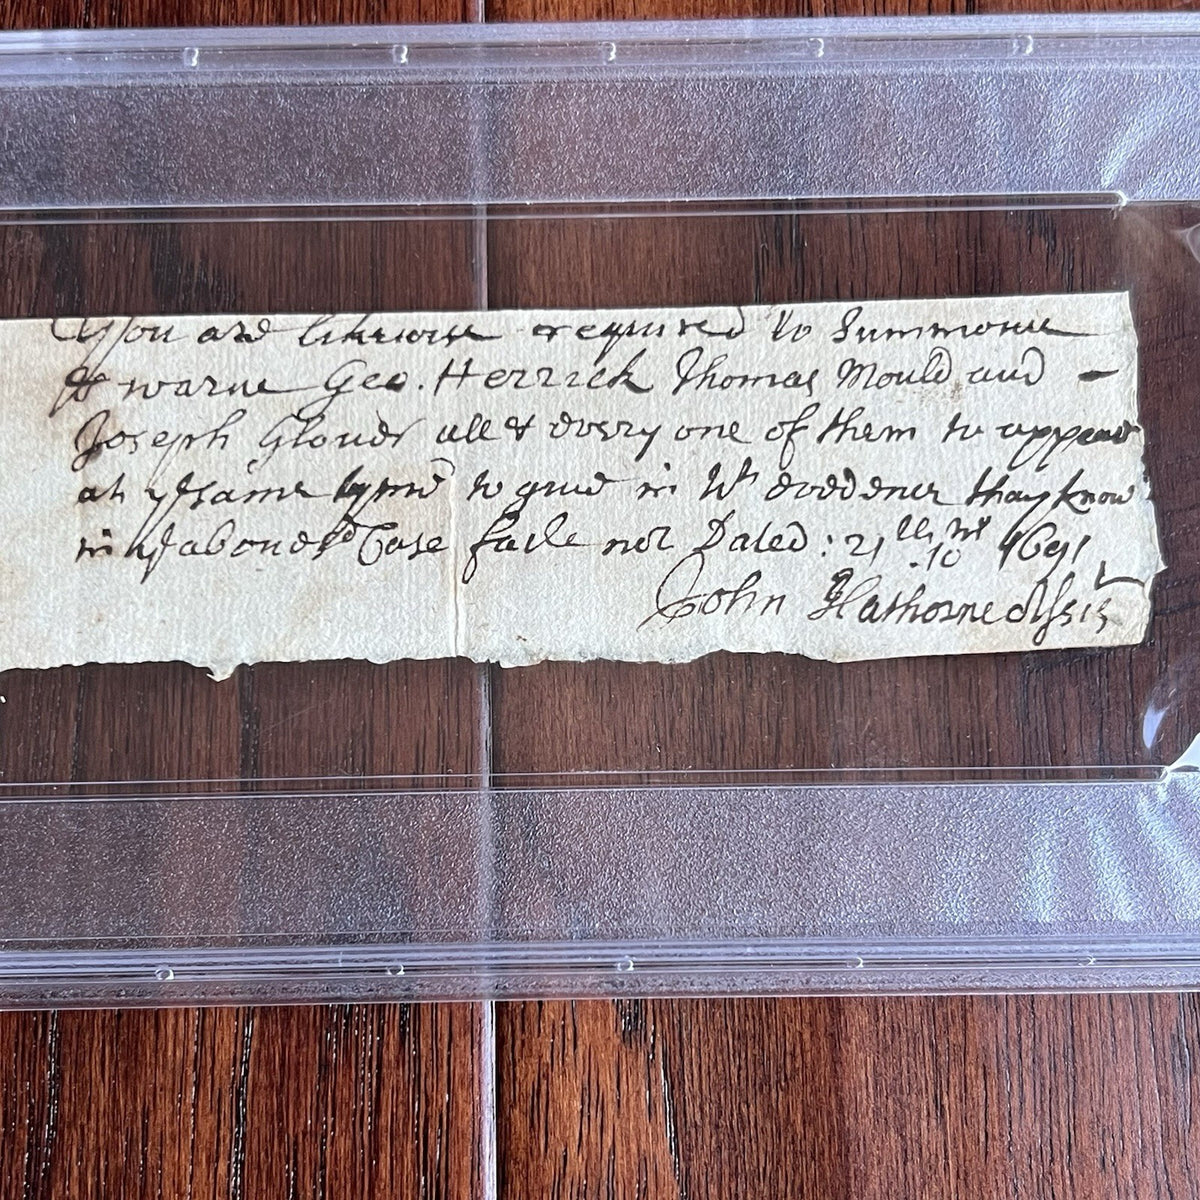 You are likewise required to Summonse
& warne Geo. Herrick Thomas Mould and -
Joseph Glover all & every one of them to appear
at ye same tyme to give in Wt evedence thay know
in ye aboves d Case faile not Dated: 21th .10 mo 1691
John Hathorne Assist